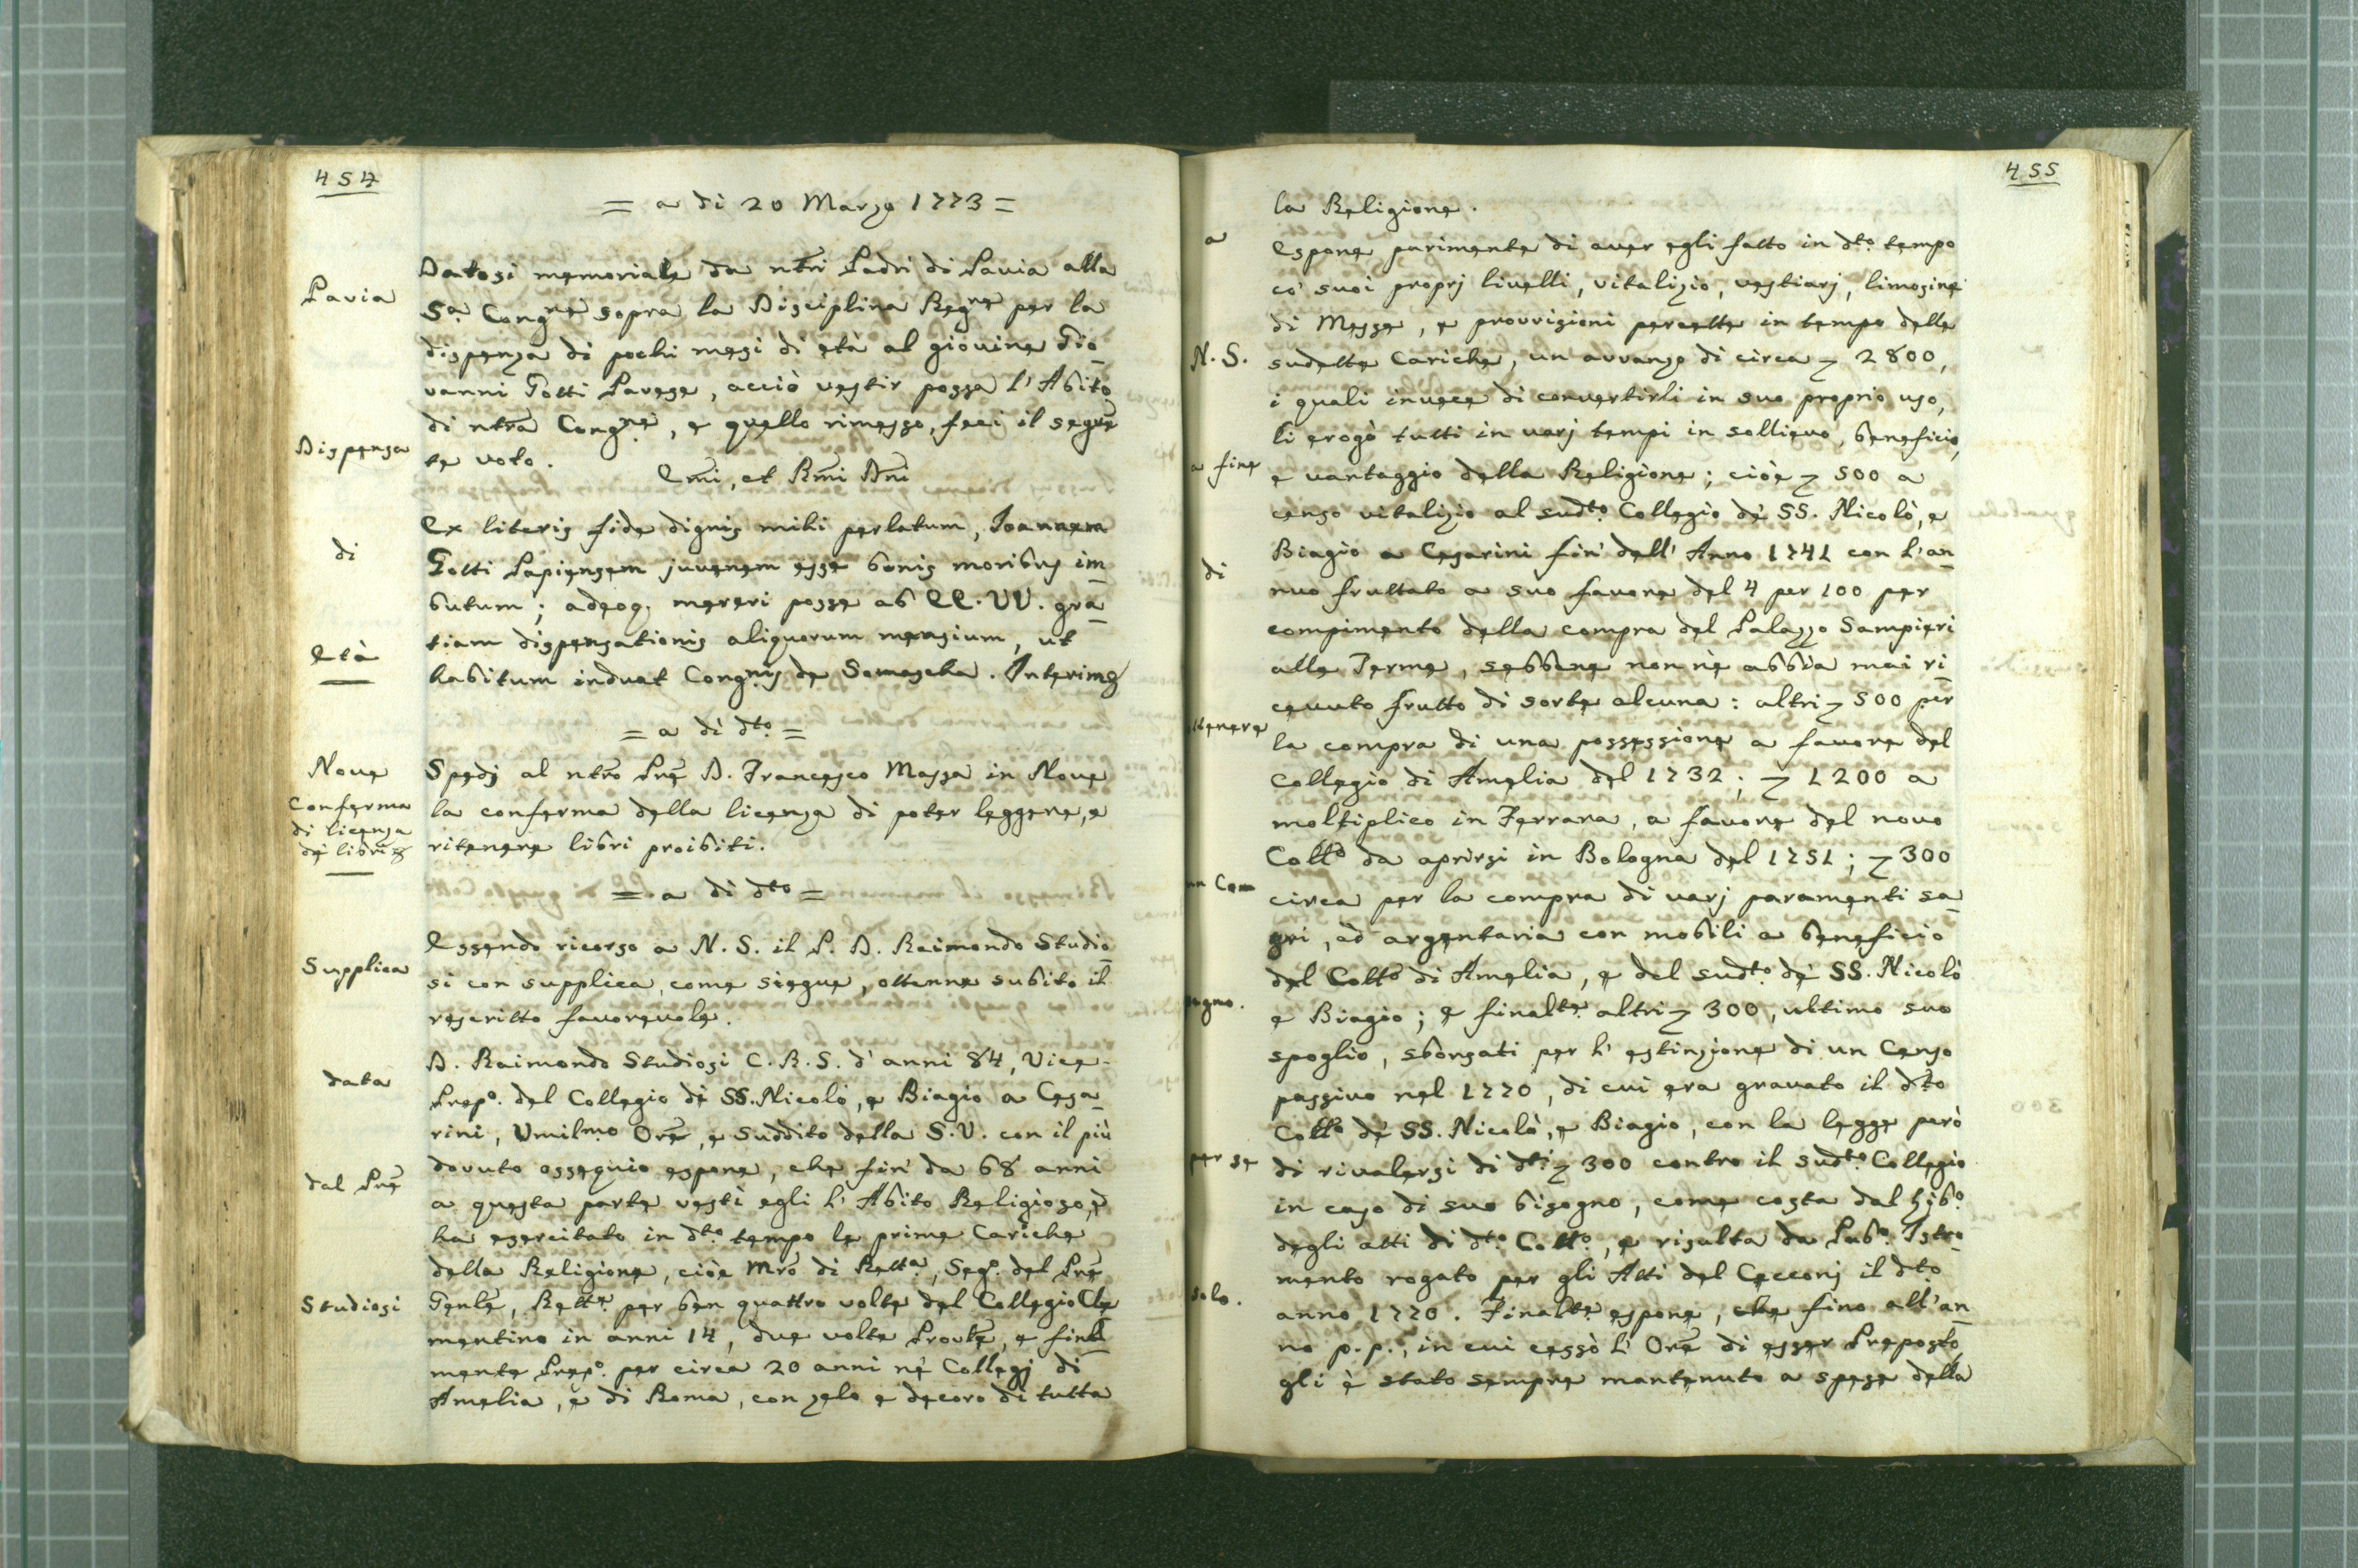 454
= a di 20 Marzo 1773 =
Pavia
Datosi memoriale da ntri Padri di Pavia alla
Sa. Congne sopra la Disciplina Regre per la
dispensa di pochi mesi di età al giovine Gio-
vanni Gotti Pavese, acciò vestir possa l'Abito
Dispensa
di ntra Congne, e quello rimesso, feci il seguen
te voto.
Emi, et Rmi Dni
di
Ex literis fide dignis mihi perlatum, Joannem
Gotti Papiensem juvenem esse bonis moribus im-
butum; adeoq. mereri posse ab EE. VV. gra-
Età
tiam dispensationis aliquorum mensium, ut
habitum induat Congnis de Somascha. Interim
= a di dto =
Nove
Conferma
di licenza
dè libri
Spedj al ntro Pre D. Francesco Massa in Nove
la conferma della licenza di poter leggere, e
ritenere libri proibiti.
= a di dto =
Supplica
Essendo ricorso a N. S. il P. D. Raimondo Studio-
si con supplica, come siegue, ottenne subito il
rescritto favorevole.
data
D. Raimondo Studiosi C. R. S. d'anni 84, Vice-
Prepo. del Collegio dè SS. Nicolò, e Biagio a Cesa-
rini, Umilmo Ore, e Suddito della S. V. con il più
dal Pre
dovuto ossequio espone, che fin' da 68 anni
a questa parte vestì egli l'Abito Religioso, e
ha esercitato in dto. tempo le prime Cariche
della Religione, cioè Mro di Retta, Sego. del Pre
Studiosi
Genle, Rettre per ben quattro volte del Collegio Cle
mentino in anni 14, due volte Provle, e final
mente Prepo. per circa 20 anni nè Collegj di
Amelia, e di Roma, con zelo e decoro di tutta
455
la Religione.
a
Espone parimente di aver egli fatto in dto. tempo
co' suoi proprj livelli, vitalizio, vestiarj, limosine
di Messe, e provvisioni percette in tempo delle
N. S.
sudette Cariche, un avvanzo di circa 2800,
i quali invece di convertirli in suo proprio uso,
li erogò tutti in varj tempi in sollievo, beneficio,
a fine
e vantaggio della Religione; cioè 500 a
censo vitalizio al sudto. Collegio dè SS. Nicolò, e
Biagio a Cesarini fin' dell'Anno 1741 con l'an-
di
nuo fruttato a suo favore del 4 per 100 per
compimento della compra del Palazzo Sampieri
alle Terme, sebbene non nè abbia mai ri-
cevuto frutto di sorte alcuna: altri 500 per
ttenere
la compra di una possessione a favore del
Collegio di Amelia del 1732; 1200 a
moltiplico in Ferrara, a favore del novo
Collo da aprirsi in Bologna del 1751; 300
un Com
circa per la compra di varj paramenti sa-
gri, ed argentaria con mobili a beneficio
del Collo di Amelia, e del sudto. dè SS. Nicolò
pagno.
e Biagio; e finalte. altri 300, ultimo suo
spoglio, sborsati per l'estinzione di un Censo
passivo nel 1770, di cui era gravato il dto
Collo dè SS. Nicolò, e Biagio, con la legge però
per se
di rivalersi di dti 300 contro il sudto. Collegio
in caso di suo bisogno, come costa dal Libo.
degli atti di dto. Collo., e risulta da Pubo. Istro-
mento rogato per gli Atti del Cecconj il dto
solo.
anno 1770. Finalte espone, che fino all'an-
no p. p., in cui cessò l'Ore di esser Preposto,
gli è stato sempre mantenuto a spese della